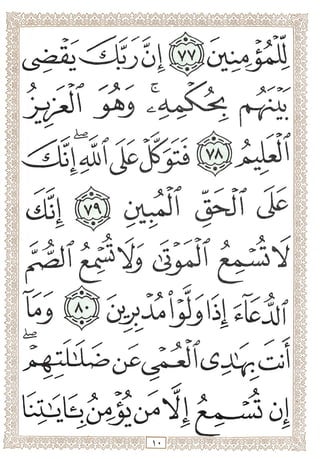 لِّلْمُؤْمِنِينَ ٧٧ إِنَّ رَبَّكَ يَقْضِى
بَيْنَهُم بِحُكْمِهِۦۚ وَهُوَ ٱلْعَزِيزُ
ٱلْعَلِيمُ ٧٨ فَتَوَكَّلْ عَلَى ٱللَّهِۖ إِنَّكَ
عَلَى ٱلْحَقِّ ٱلْمُبِينِ ٧٩ إِنَّكَ
لَا تُسْمِعُ ٱلْمَوْتَىٰ وَلَا تُسْمِعُ ٱلصُّمَّ
ٱلدُّعَآءَ إِذَا وَلَّوْا۟ مُدْبِرِينَ ٨٠ وَمَآ
أَنتَ بِهَـٰدِى ٱلْعُمْىِ عَن ضَلَـٰلَتِهِمْۖ
إِن تُسْمِعُ إِلَّا مَن يُؤْمِنُ بِـَٔايَـٰتِنَا
١٠